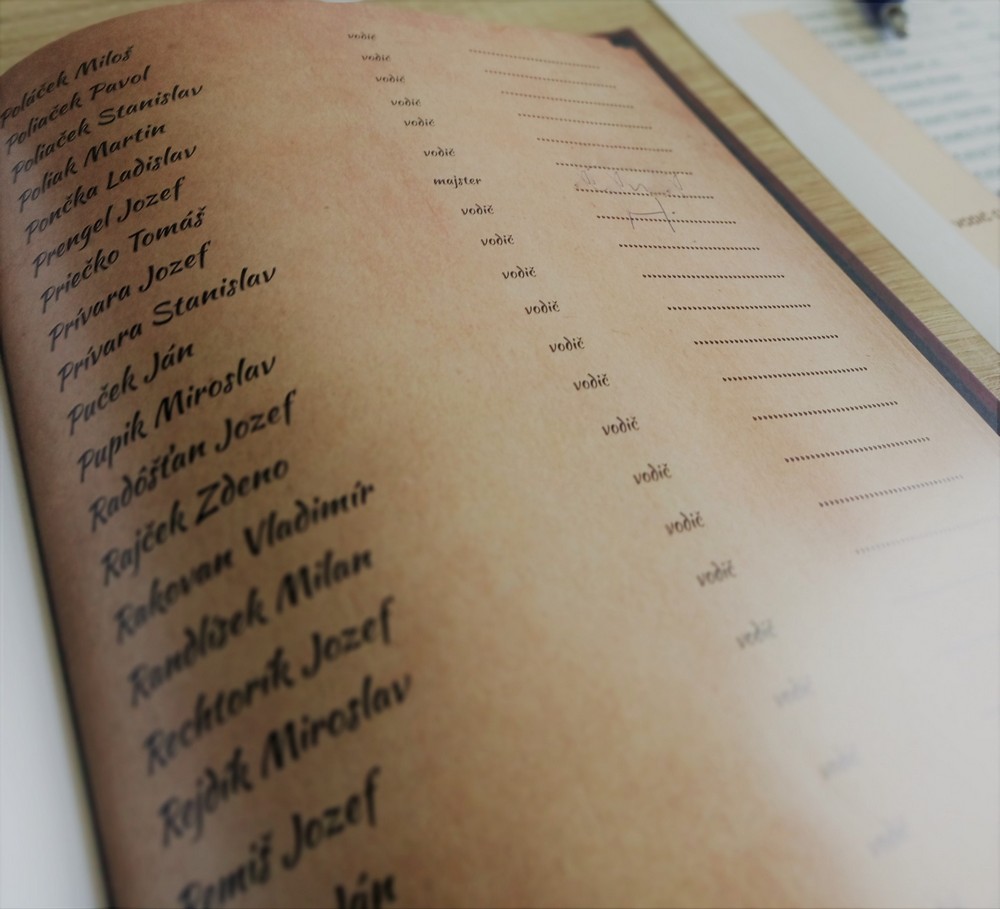 Poláček Miloš vodič
Poliaček Pavol vodič
Poliaček Stanislav vodič
Poliak Martin vodič
Pončka Ladislav vodič
Prengel Jozef vodič
Priečko Tomáš majster
Prívara Jozef vodič
Prívara Stanislav vodič
Puček Ján vodič
Pupik Miroslav vodič
Radôšťan Jozef vodič
Rajček Zdeno vodič
Rakovan Vladimír vodič
Randlísek Milan vodič
Rechtorík Jozef vodič
Rejdík Miroslav vodič
Remiš Jozef vodič
Ján vodič